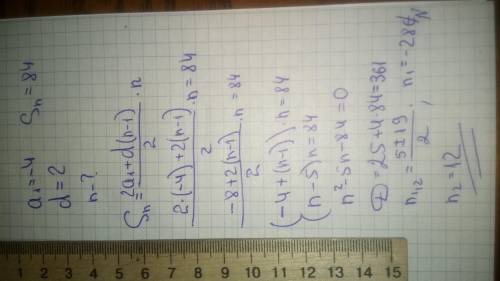 a₁=-4 Sn=84
d=2
n-?
Sn=(2a₁+d(n-1))/2 · n
(2·(-4)+2(n-1))/2 · n=84
(-8+2(n-1))/2 · n=84
(-4+(n-1))·n=84
(n-5)n=84
n²-5n-84=0
D=25+4·84=361
n₁,₂=(5±19)/2; n₁=-28∉N
n₂=12
1 2 3 4 5 6 7 8 9 10 11 12 13 14 15